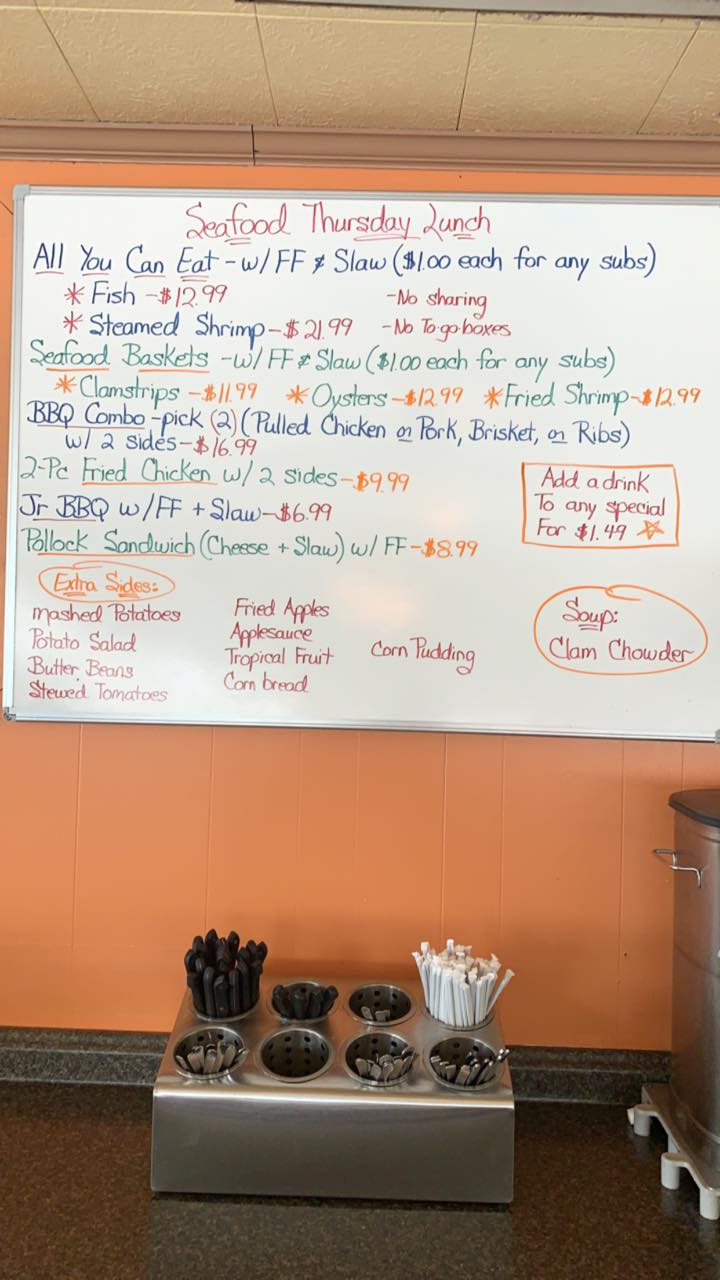 Seafood Thursday Lunch
All You Can Eat - w/ FF & Slaw ($1.00 each for any subs)
* Fish - $12.99 - No sharing
* Steamed Shrimp - $21.99 - No To go boxes
Seafood Baskets - w/ FF & Slaw ($1.00 each for any subs)
* Clamstrips - $11.99 * Oysters - $12.99 * Fried Shrimp - $12.99
BBQ Combo - pick (2) (Pulled Chicken or Pork, Brisket, or Ribs)
w/ 2 sides - $16.99
2-Pc Fried Chicken w/ 2 sides - $9.99
Jr BBQ w/ FF + Slaw - $6.99
Pollock Sandwich (Cheese + Slaw) w/ FF - $8.99
Add a drink
To any special
For $1.49
Extra Sides:
mashed Potatoes
Potato Salad
Butter Beans
Stewed Tomatoes
Fried Apples
Applesauce
Tropical Fruit
Corn bread
Corn Pudding
Soup:
Clam Chowder